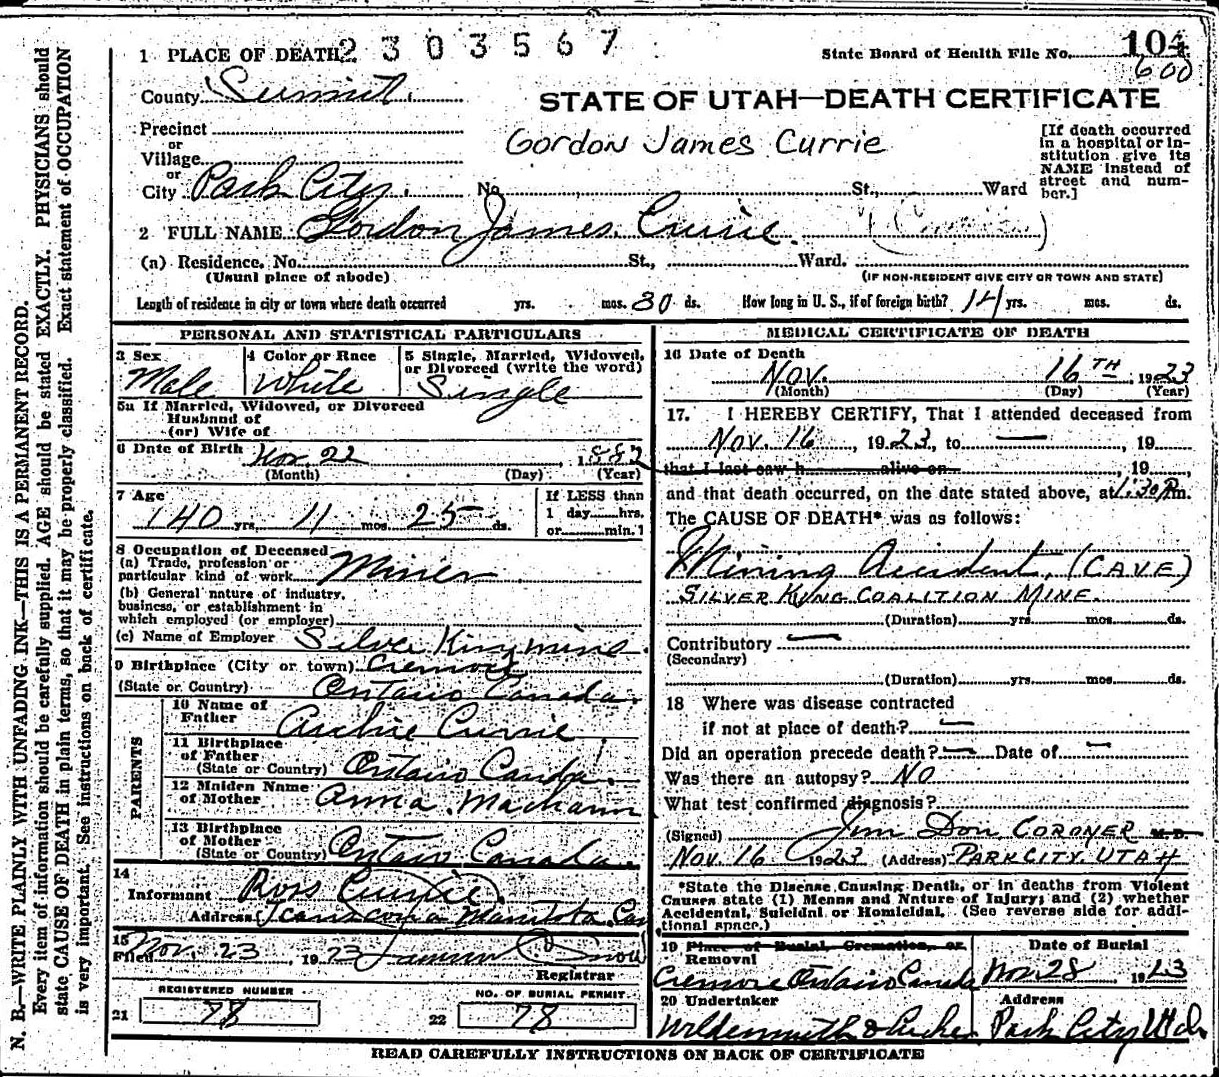 1 PLACE OF DEATH 2303567 State Board of Health File No. 104
600
County Summit.
STATE OF UTAH—DEATH CERTIFICATE
Precinct
or
Village
or
City Park City. No. St., Ward
Gordon James Currie
[If death occurred
in a hospital or in-
stitution give its
NAME instead of
street and num-
ber.]
2 FULL NAME Gordon James Currie.
(a) Residence. No. St., Ward.
(Usual place of abode) (IF NON-RESIDENT GIVE CITY OR TOWN AND STATE)
Length of residence in city or town where death occurred yrs. mos. 30 ds. How long in U. S., if of foreign birth? 14 yrs. mos. ds.
PERSONAL AND STATISTICAL PARTICULARS
3 Sex 4 Color or Race 5 Single, Married, Widowed,
or Divorced (write the word)
Male White Single
5a If Married, Widowed, or Divorced
Husband of
(or) Wife of
6 Date of Birth Nov. 22, 1882
(Month) (Day) (Year)
7 Age If LESS than
1 day hrs.
140 yrs. 11 mos. 25 ds. or min.
8 Occupation of Deceased
(a) Trade, profession or
particular kind of work Miner
(b) General nature of industry,
business, or establishment in
which employed (or employer)
(c) Name of Employer Silver King mine.
9 Birthplace (City or town) Cremore
(State or Country) Ontario Canada.
PARENTS
10 Name of
Father Archie Currie
11 Birthplace
of Father
(State or Country) Ontario Canda.
12 Maiden Name
of Mother Anna
13 Birthplace
of Mother
(State or Country) Ontario Canada.
14
Informant Ross Currie
Address Transcona Manitoba. Can
15
Filed Nov. 23 1923 Snow
Registrar
REGISTERED NUMBER NO. OF BURIAL PERMIT
21 78 22 78
MEDICAL CERTIFICATE OF DEATH
16 Date of Death
Nov. 16TH, 1923
(Month) (Day) (Year)
17. I HEREBY CERTIFY, That I attended deceased from
Nov. 16, 1923, to —, 19
that I last saw h alive on, 19
and that death occurred, on the date stated above, at 1:30 P.m.
The CAUSE OF DEATH* was as follows:
Mining Accident, (CAVE)
SILVER KING COALITION MINE.
(Duration) yrs. mos. ds.
Contributory —
(Secondary)
(Duration) yrs. mos. ds.
18 Where was disease contracted
if not at place of death? —
Did an operation precede death? — Date of —
Was there an autopsy? NO
What test confirmed diagnosis?
(Signed) Jim Don CORONER M.D.
Nov. 16 1923 (Address) PARK CITY, UTAH
*State the Disease Causing Death, or in deaths from Violent
Causes state (1) Means and Nature of Injury; and (2) whether
Accidental, Suicidal or Homicidal. (See reverse side for addi-
tional space.)
19 Place of Burial, Cremation, or
Removal Date of Burial
Cremore Ontario Canada Nov. 28 1923
20 Undertaker Address
Park City Utah
READ CAREFULLY INSTRUCTIONS ON BACK OF CERTIFICATE
N. B.—WRITE PLAINLY WITH UNFADING INK—THIS IS A PERMANENT RECORD.
Every item of information should be carefully supplied. AGE should be stated EXACTLY. PHYSICIANS should
state CAUSE OF DEATH in plain terms, so that it may be properly classified. Exact statement of OCCUPATION
is very important. See instructions on back of certificate.